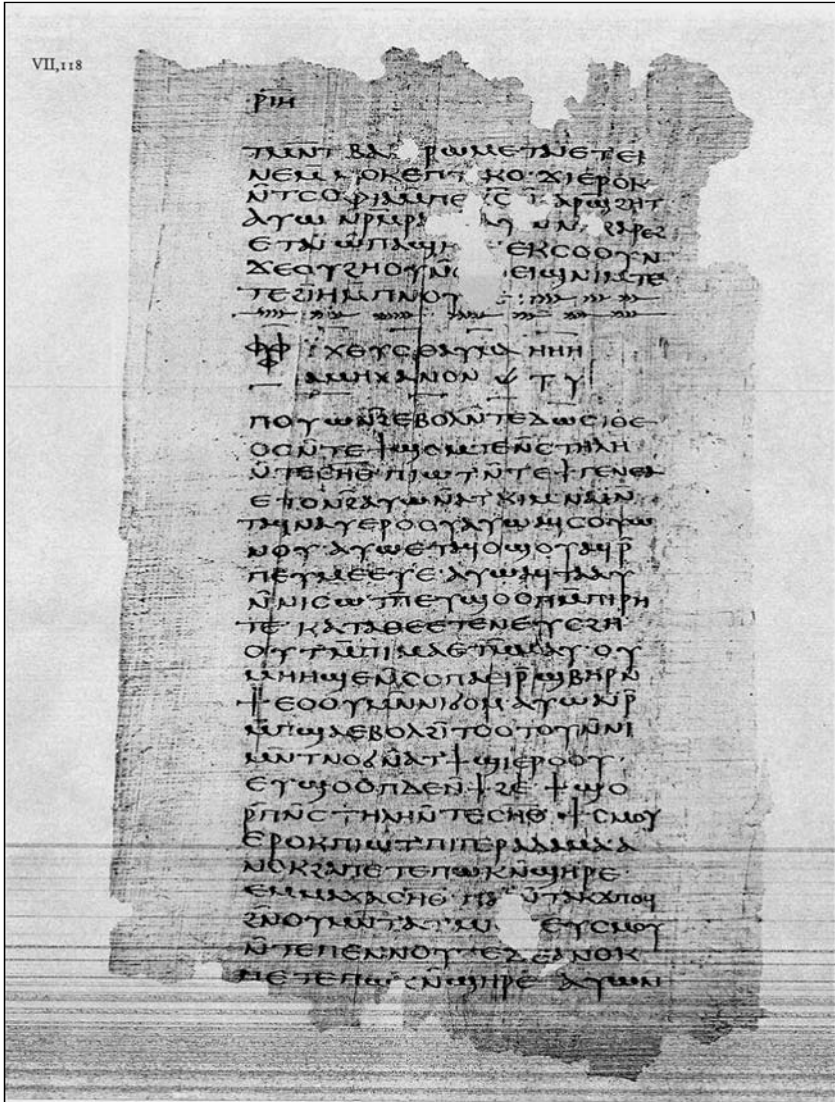 VII,118
ⲣ̄ⲓ̄ⲏ̄
ⲧⲙⲛ̄ⲧ ⲃⲁ ⲣⲱⲙⲉ
ⲛⲉ ⲙ ⲙⲟⲕ ⲉⲡⲧ ⲕⲟ· ϫⲓ ⲉⲣⲟⲕ
ⲛ̄ⲧⲥⲟⲫⲓⲁ ⲙ̄ⲡⲉ ⲭ̄ⲥ̄ ⲁⲣϣ ϩⲏⲧ
ⲁⲩⲱ ⲛ̄ⲣⲙ̄ⲣⲁ ϩⲁⲣⲉϩ
ⲡⲁϣⲏ ⲉⲕⲥⲟⲟⲩⲛ
ϫⲉ ⲟⲩϩⲏⲟⲩ ⲛ ⲉⲓϣ ⲛⲓⲙ ⲧⲉ
ⲧⲉϩⲓⲏ ⲙ̄ⲡⲛⲟⲩ
ⲓ̈ⲭⲑⲩⲥ ⲑⲁⲩⲙⲁ
ⲁⲙⲏⲭⲁⲛⲟⲛ
ⲡⲟⲩⲱⲛϩ̄ ⲉⲃⲟⲗ ⲛ̄ⲧⲉ ⲇⲱⲥⲓⲑⲉ
ⲟⲥ ⲛ̄ⲧⲉ ϯϣⲟⲙⲧⲉ ⲛ̄ⲥⲧⲏⲗⲏ
ⲛ̄ⲧⲉ ⲥⲏⲑ̄ ⲡⲓⲱⲧ ⲛ̄ⲧⲉ ϯⲅⲉⲛⲉⲁ
ⲉⲧⲟⲛϩ̄ ⲁⲩⲱ ⲛ̄ⲁⲧⲕⲓⲙ ⲛⲁⲓ̈ ⲛ̄
ⲧⲁϥⲛⲁⲩ ⲉⲣⲟⲟⲩ ⲁⲩⲱ ⲁϥⲥⲟⲩⲱ
ⲛⲟⲩ· ⲁⲩⲱ ⲉⲧⲁϥⲟϣⲟⲩ ⲁϥⲣ̄
ⲡⲉⲩⲙⲉⲉⲩⲉ· ⲁⲩⲱ ⲁϥⲧⲁⲁⲩ
ⲛ̄ⲛⲓⲥⲱⲧⲡ̄ ⲉⲩϣⲟⲟⲡ ⲙ̄ⲡⲓⲣⲏ
ⲧⲉ· ⲕⲁⲧⲁ ⲑⲉ ⲉⲧⲉ ⲛⲉⲩⲥϩⲏ
ⲟⲩⲧ ⲙ̄ⲡⲓⲙⲁ ⲉⲧⲙ̄ⲙⲁⲩ· ⲟⲩ
ⲙⲏⲏϣⲉ ⲛ̄ⲥⲟⲡ ⲁⲉⲓⲣ̄ϣⲃⲏⲣ ⲛ̄
ϯⲉⲟⲟⲩ ⲙⲛ̄ ⲛⲓϭⲟⲙ· ⲁⲩⲱ ⲁⲉⲓⲣ̄
ⲙ̄ⲡϣⲁ ⲉⲃⲟⲗ ϩⲓⲧⲟⲟⲧⲟⲩ ⲛ̄ⲛⲓ
ⲙⲛ̄ⲧⲛⲟϭ ⲛ̄ⲁⲧϯϣⲓ ⲉⲣⲟⲟⲩ·
ⲉⲩϣⲟⲟⲡ ⲇⲉ ⲛ̄ϯϩⲉ· ϯϣⲟ
ⲣⲡ̄ ⲛ̄ⲥⲧⲏⲗⲏ ⲛ̄ⲧⲉ ⲥⲏⲑ̄· ϯⲥⲙⲟⲩ
ⲉⲣⲟⲕ ⲡⲓⲱⲧ ⲡⲓⲅⲉⲣⲁⲇⲁⲙⲁ ⲁ
ⲛⲟⲕ ϩⲁ ⲡⲉⲧⲉ ⲡⲱⲕ ⲛ̄ϣⲏⲣⲉ·
ⲉⲙⲙⲁⲭⲁ ⲥⲏⲑ̄· ⲡⲁⲓ̈ ⲛ̄ⲧⲁⲕϫⲡⲟϥ
ϩⲛ̄ ⲟⲩⲙⲛ̄ⲧⲁⲧⲙⲓ ⲉⲩⲥⲙⲟⲩ
ⲛ̄ⲧⲉ ⲡⲉⲛⲛⲟⲩⲧⲉ ϫⲉ ⲁⲛⲟⲕ
ⲡⲉⲧⲉ ⲡⲱⲕ ⲛ̄ϣⲏⲣⲉ· ⲁⲩⲱ ⲛ